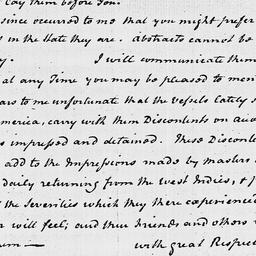 Lay them before You.
since occurred to me that you might prefer
s in the State they are. Abstracts cannot be
y. I will communicate them
at any Time you may be pleased to men
ars to me unfortunate that the Vessels lately s
merica, carry with them Discontents on acco
s impressed and detained. These Discontent
add to the Impressions made by masters a
daily returning from the West Indies, &
the Severities which they there experienced
r will feel; and their Friends and others w
um—
with great Respect